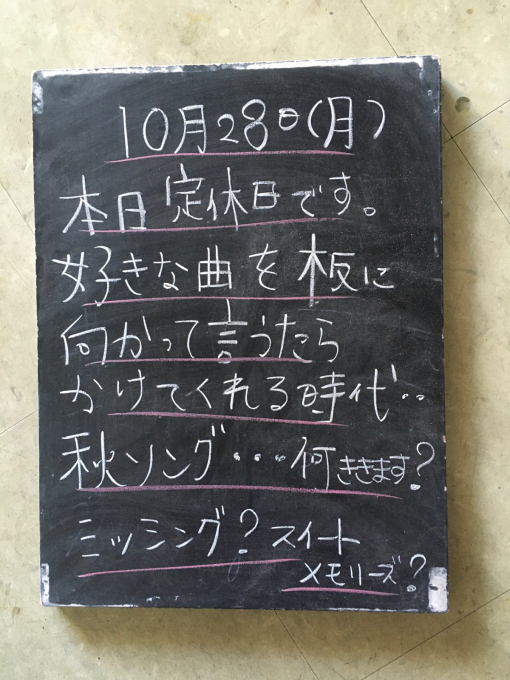 10月28日(月)
本日定休日です。
好きな曲を板に
向かって言うたら
かけてくれる時代‥
秋ソング・・・何ききます?
ミッシング?スイート
メモリーズ?